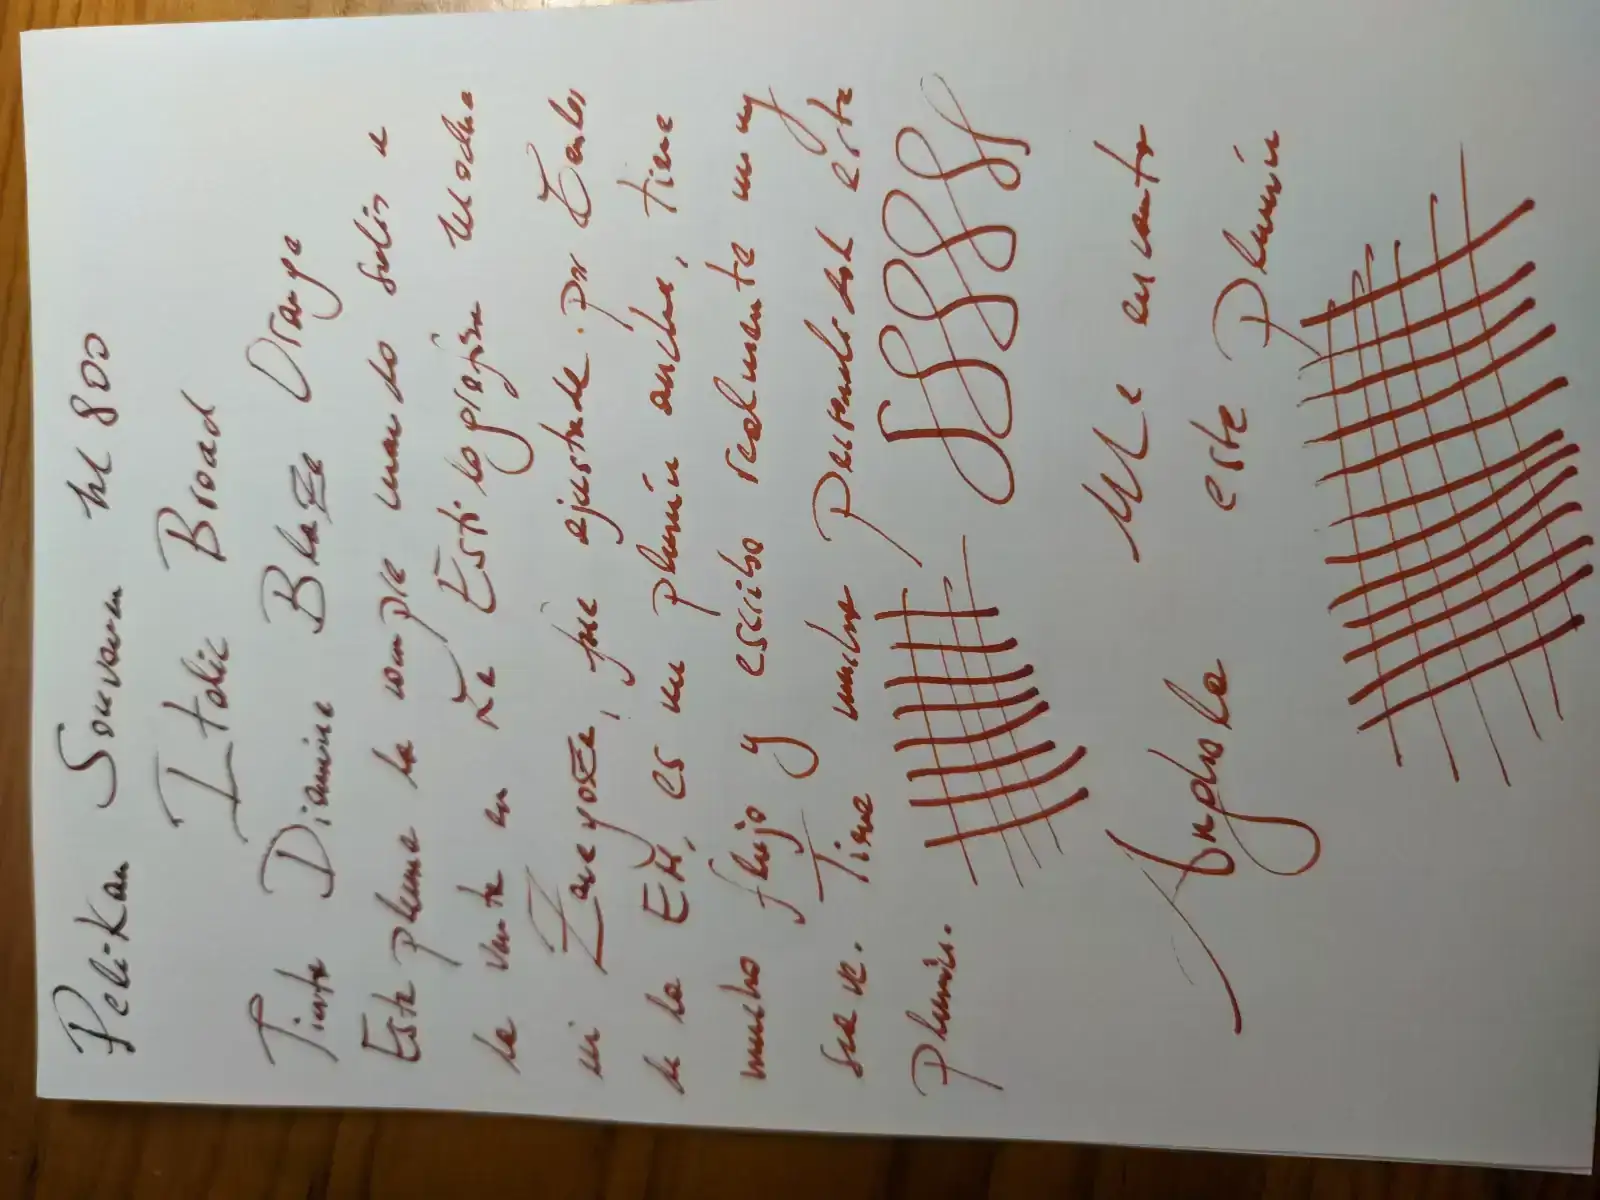 Pelikan Souverän M 800
Italic Broad
Tinta Diamine Blaze Orange
Esta pluma la compré cuando salió a
la venta en La Estilográfica Moderna
en Zaragoza, fue ajustada por Carlos
de la EM, es un plumín ancho, tiene
mucho flujo y escribe realmente muy
suave. Tiene mucha personalidad este
plumín.
Me encanta
este Plumín